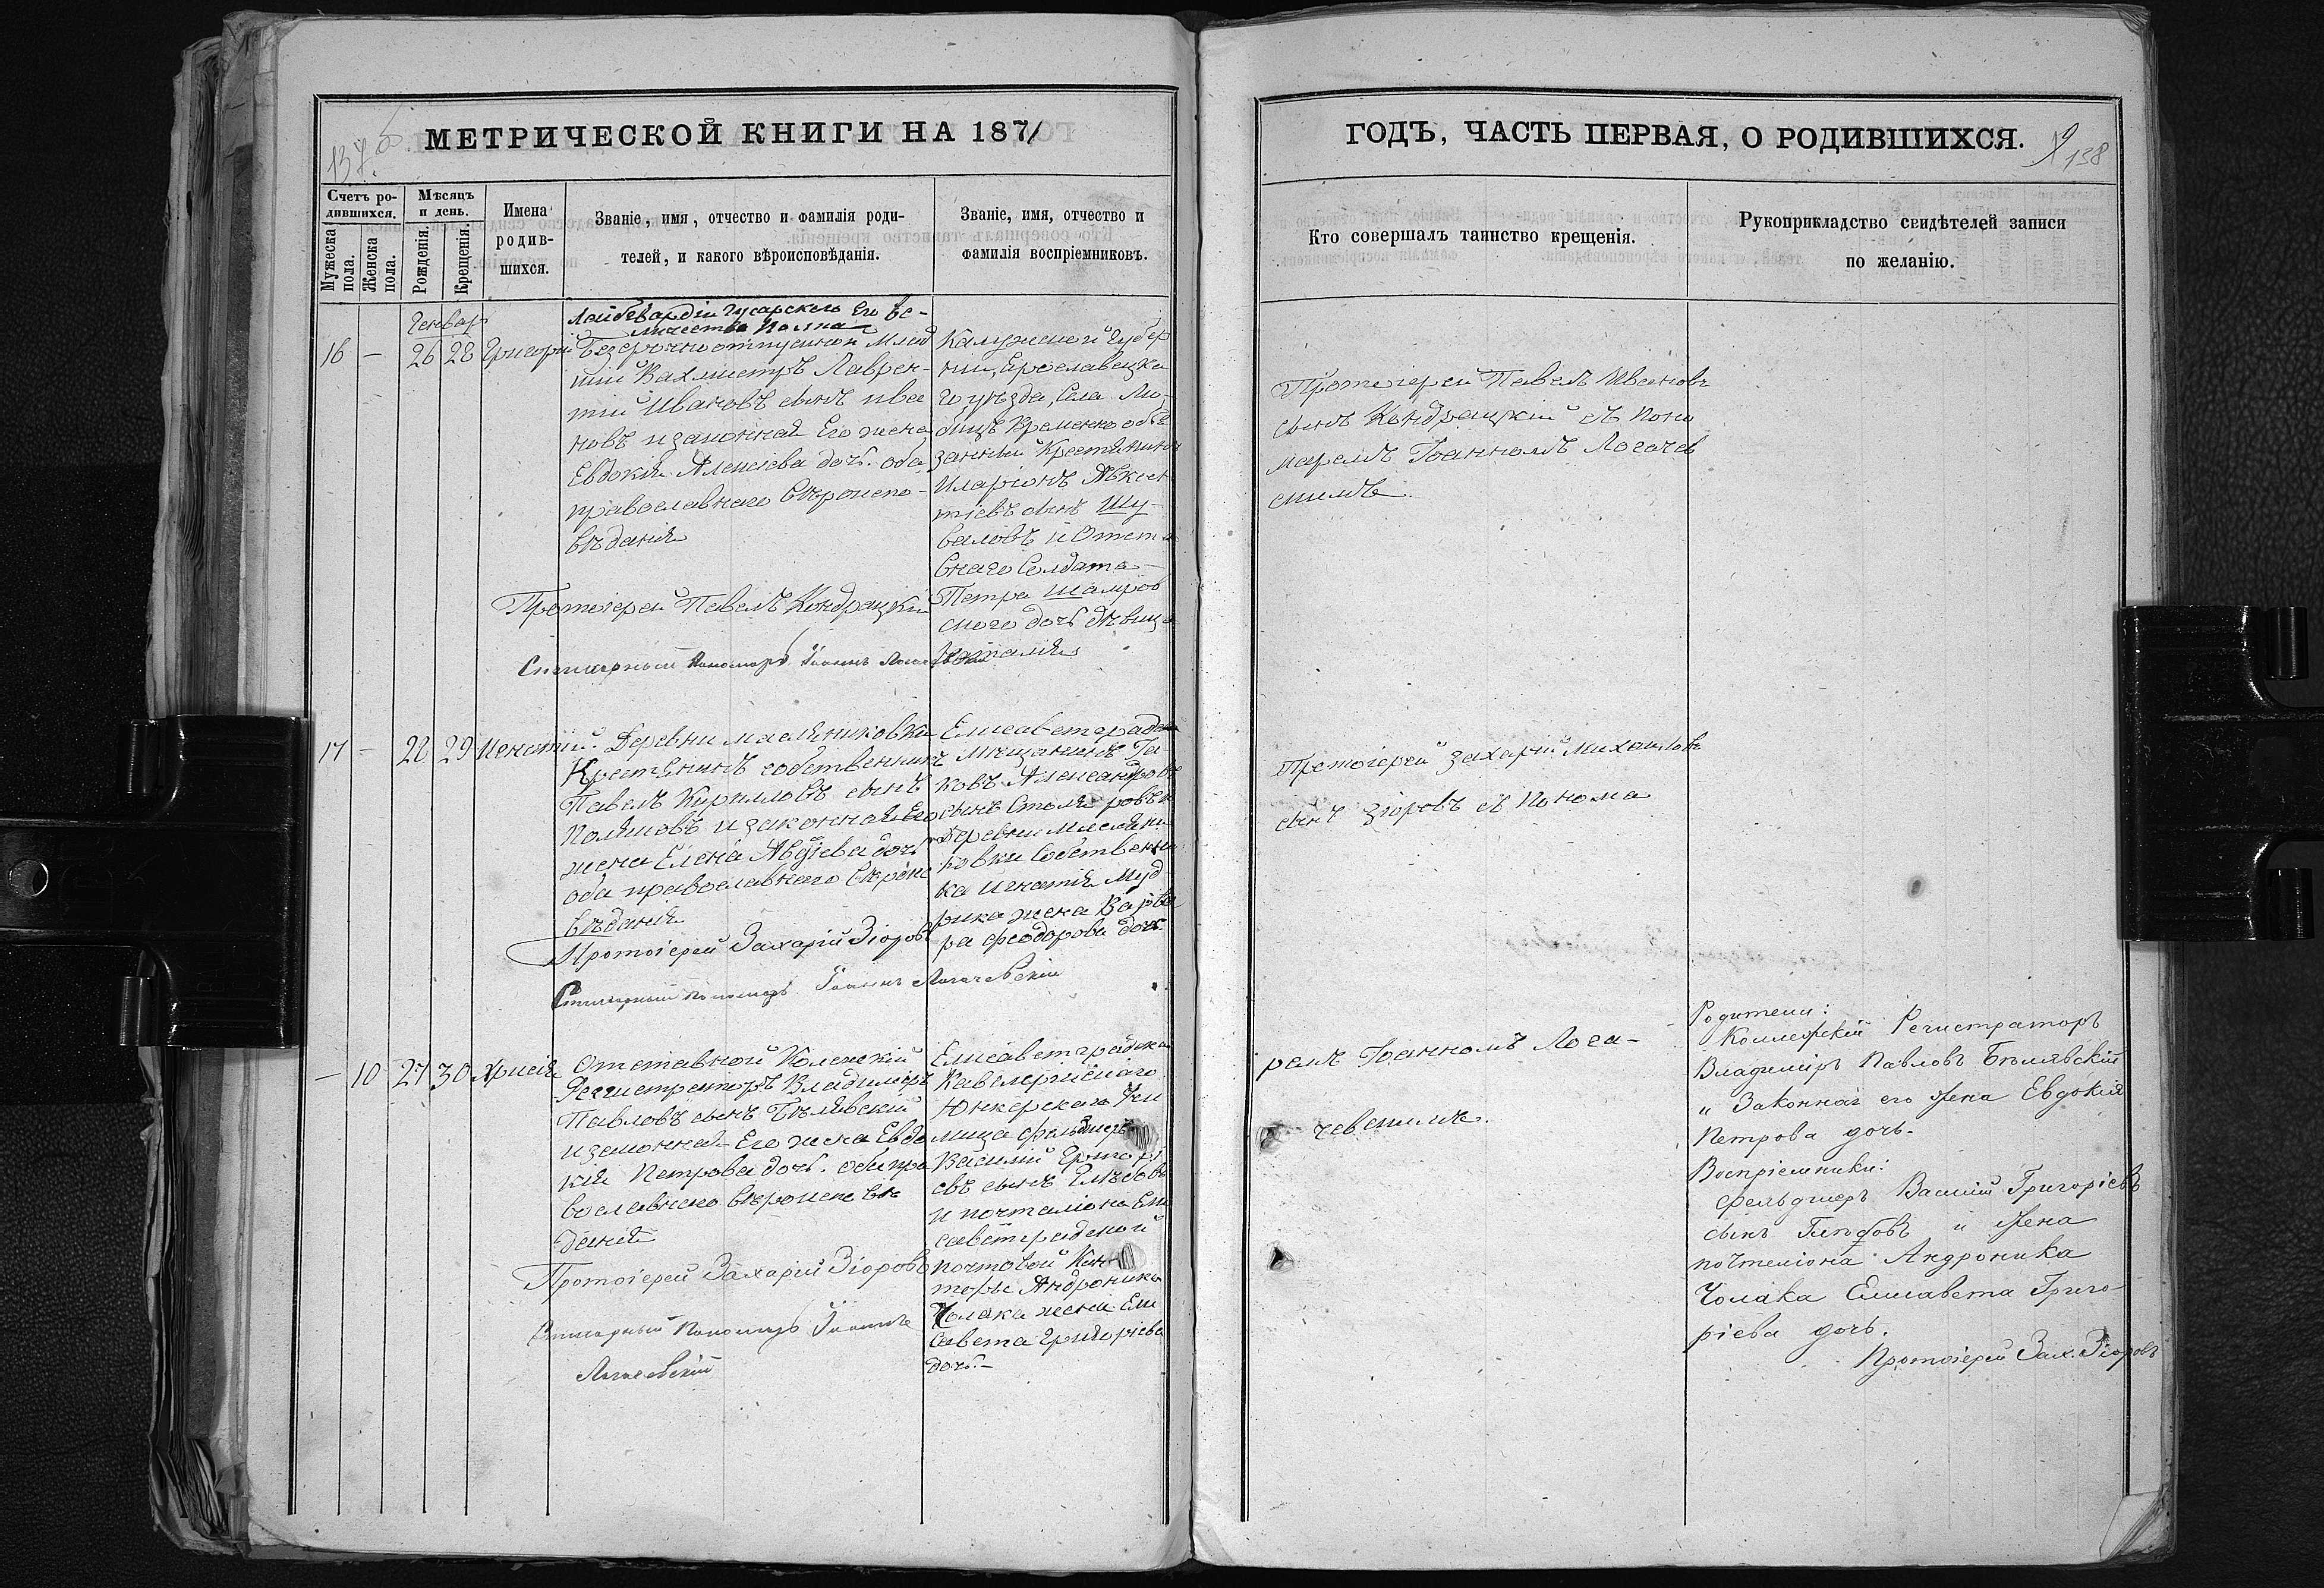 МЕТРИЧЕСКОЙ КНИГИ НА 1871
137
Счетъ ро-
дившихся.
Мужеска
пола.
Женска
пола.
Мѣсяцъ
и день.
Рожденія.
Крещенія.
Имена
родив-
шихся.
Званіе, имя, отчество и фамилія роди-
телей, и какого вѣроисповѣданія.
Званіе, имя, отчество и
фамилія воспріемниковъ.
Генвар
16 — 26 28 Григорій
Лейбгвардіи Гусарскаго Его Ве-
личества Полка
Безсрочноотпускной Млад
шій Вахмистръ Лаврен-
тій Ивановъ сынъ Ива
новъ и законная Его жена
Евдокія Алексіева доч. оба
православнаго вѣроиспо-
вѣданія
Протоіерей Павелъ Кондрацкій
Стихарный Пономарь Іоаннъ Логачевскій
Калужской Губер
ніи, Ерославецка
го уѣзда, Села Лю-
бицъ Временно обя
занный Крестьянинъ
Иларіонъ Авксен
тіевъ сынъ Шу-
валовъ и Отста
внаго Солдата
Петра Шамров
скаго дочь дѣвица
Наталія
17 — 28 29 Игнатій.
Деревни Масляниковки
Крестьянинъ собственникъ
Павелъ Кириловъ сынъ
Поляковъ и законная Его
жена Елена Авдіева дочь
оба православнаго вѣроиспо
вѣданія
Протоіерей Захарій Зіоровъ
Стихарный пономарь Іоаннъ Логачевскій
Елисаветградскій
Мѣщанинъ Іа-
ковъ Александровъ
сынъ Столяровъ и
Деревни Масляни
ковки Собственни
ка Игнатія Муд
рика жена Варва
ра Феодорова доч.
— 10 27 30 Хрисія
Отставной Колежскій
Регистраторъ Владиміръ
Павловъ сынъ Бѣлявскій
и законная Его жена Евдо
кія Петрова доч. оба пра
вославнаго вѣроисповѣ
данія
Протоіерей Захарій Зіоровъ
Стихарный Пономарь Іоаннъ
Логачевскій
Елисаветградска
Кавалерійскаго
Юнкерскаго Учи
лища Фельдшеръ
Василій Григорі
евъ сынъ Глѣбовъ
и почталіона Ели
саветградской
почтовой Кон
торы Андроника
Чолака жена Ели
савета Григоріева
доч.—
ГОДЪ, ЧАСТЬ ПЕРВАЯ, О РОДИВШИХСЯ.
138
Кто совершалъ таинство крещенія.
Рукоприкладство свидѣтелей записи
по желанію.
Протоіерей Павелъ Ивановъ
сынъ Кондрацкій съ Поно
маремъ Іоанномъ Логачев
скимъ
Протоіерей Захарій Михаиловъ
сынъ Зіоровъ съ Понома
ремъ Іоанномъ Лога-
чевскимъ.
Родители:
Коллежскій Регистраторъ
Владиміръ Павловъ Бѣлявскій
и Законная его жена Евдокія
Петрова дочь.
Воспріемники:
Фельдшеръ Василій Григоріевъ
сынъ Глѣбовъ и жена
почталіона Андроника
Чолака Елисавета Григо-
ріева дочь.
Протоіерей Зах. Зіоровъ